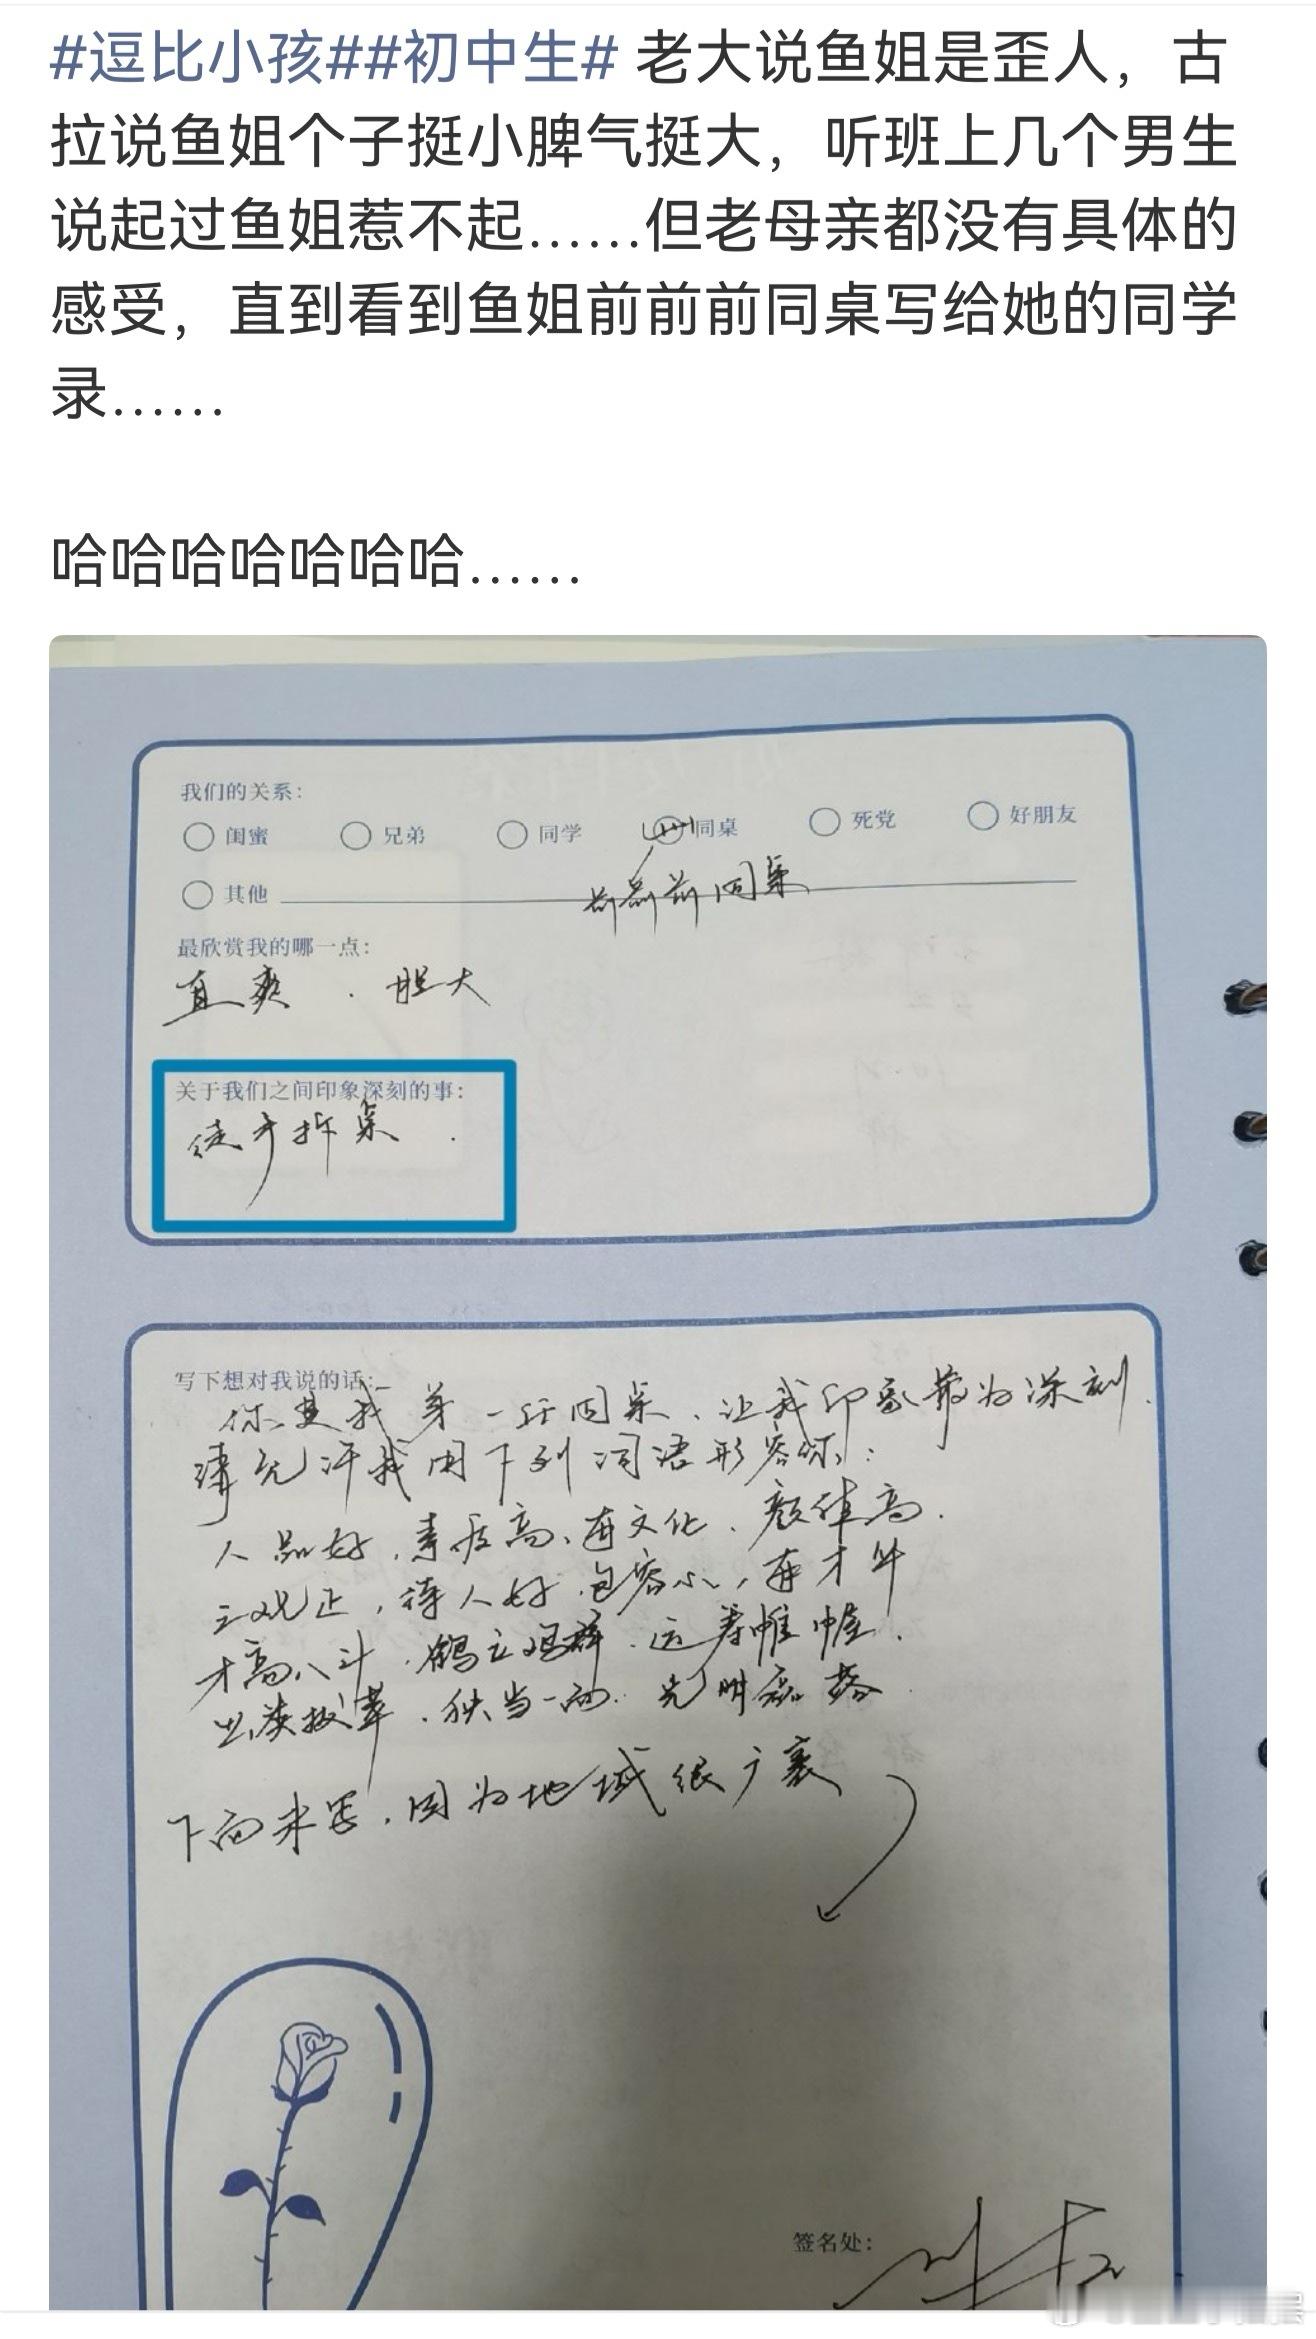 #逗比小孩##初中生# 老大说鱼姐是歪人，古
拉说鱼姐个子挺小脾气挺大，听班上几个男生
说起过鱼姐惹不起……但老母亲都没有具体的
感受，直到看到鱼姐前前前同桌写给她的同学
录……
哈哈哈哈哈哈哈……
我们的关系：
闺蜜 兄弟 同学 同桌 死党 好朋友
其他 前前前同桌
最欣赏我的哪一点：
直爽．胆大
关于我们之间印象深刻的事：
徒手拆桌．
写下想对我说的话：
你是我第一任同桌、让我印象最为深刻．
请允许我用下列词语形容你：
人品好，素质高、有文化、颜值高．
三观正，待人好，包容心，有才华
才高八斗．鹤立鸡群．运筹帷幄．
出类拔萃．独当一面．光明磊落．
下面未写．因为地域很广袤
签名处：